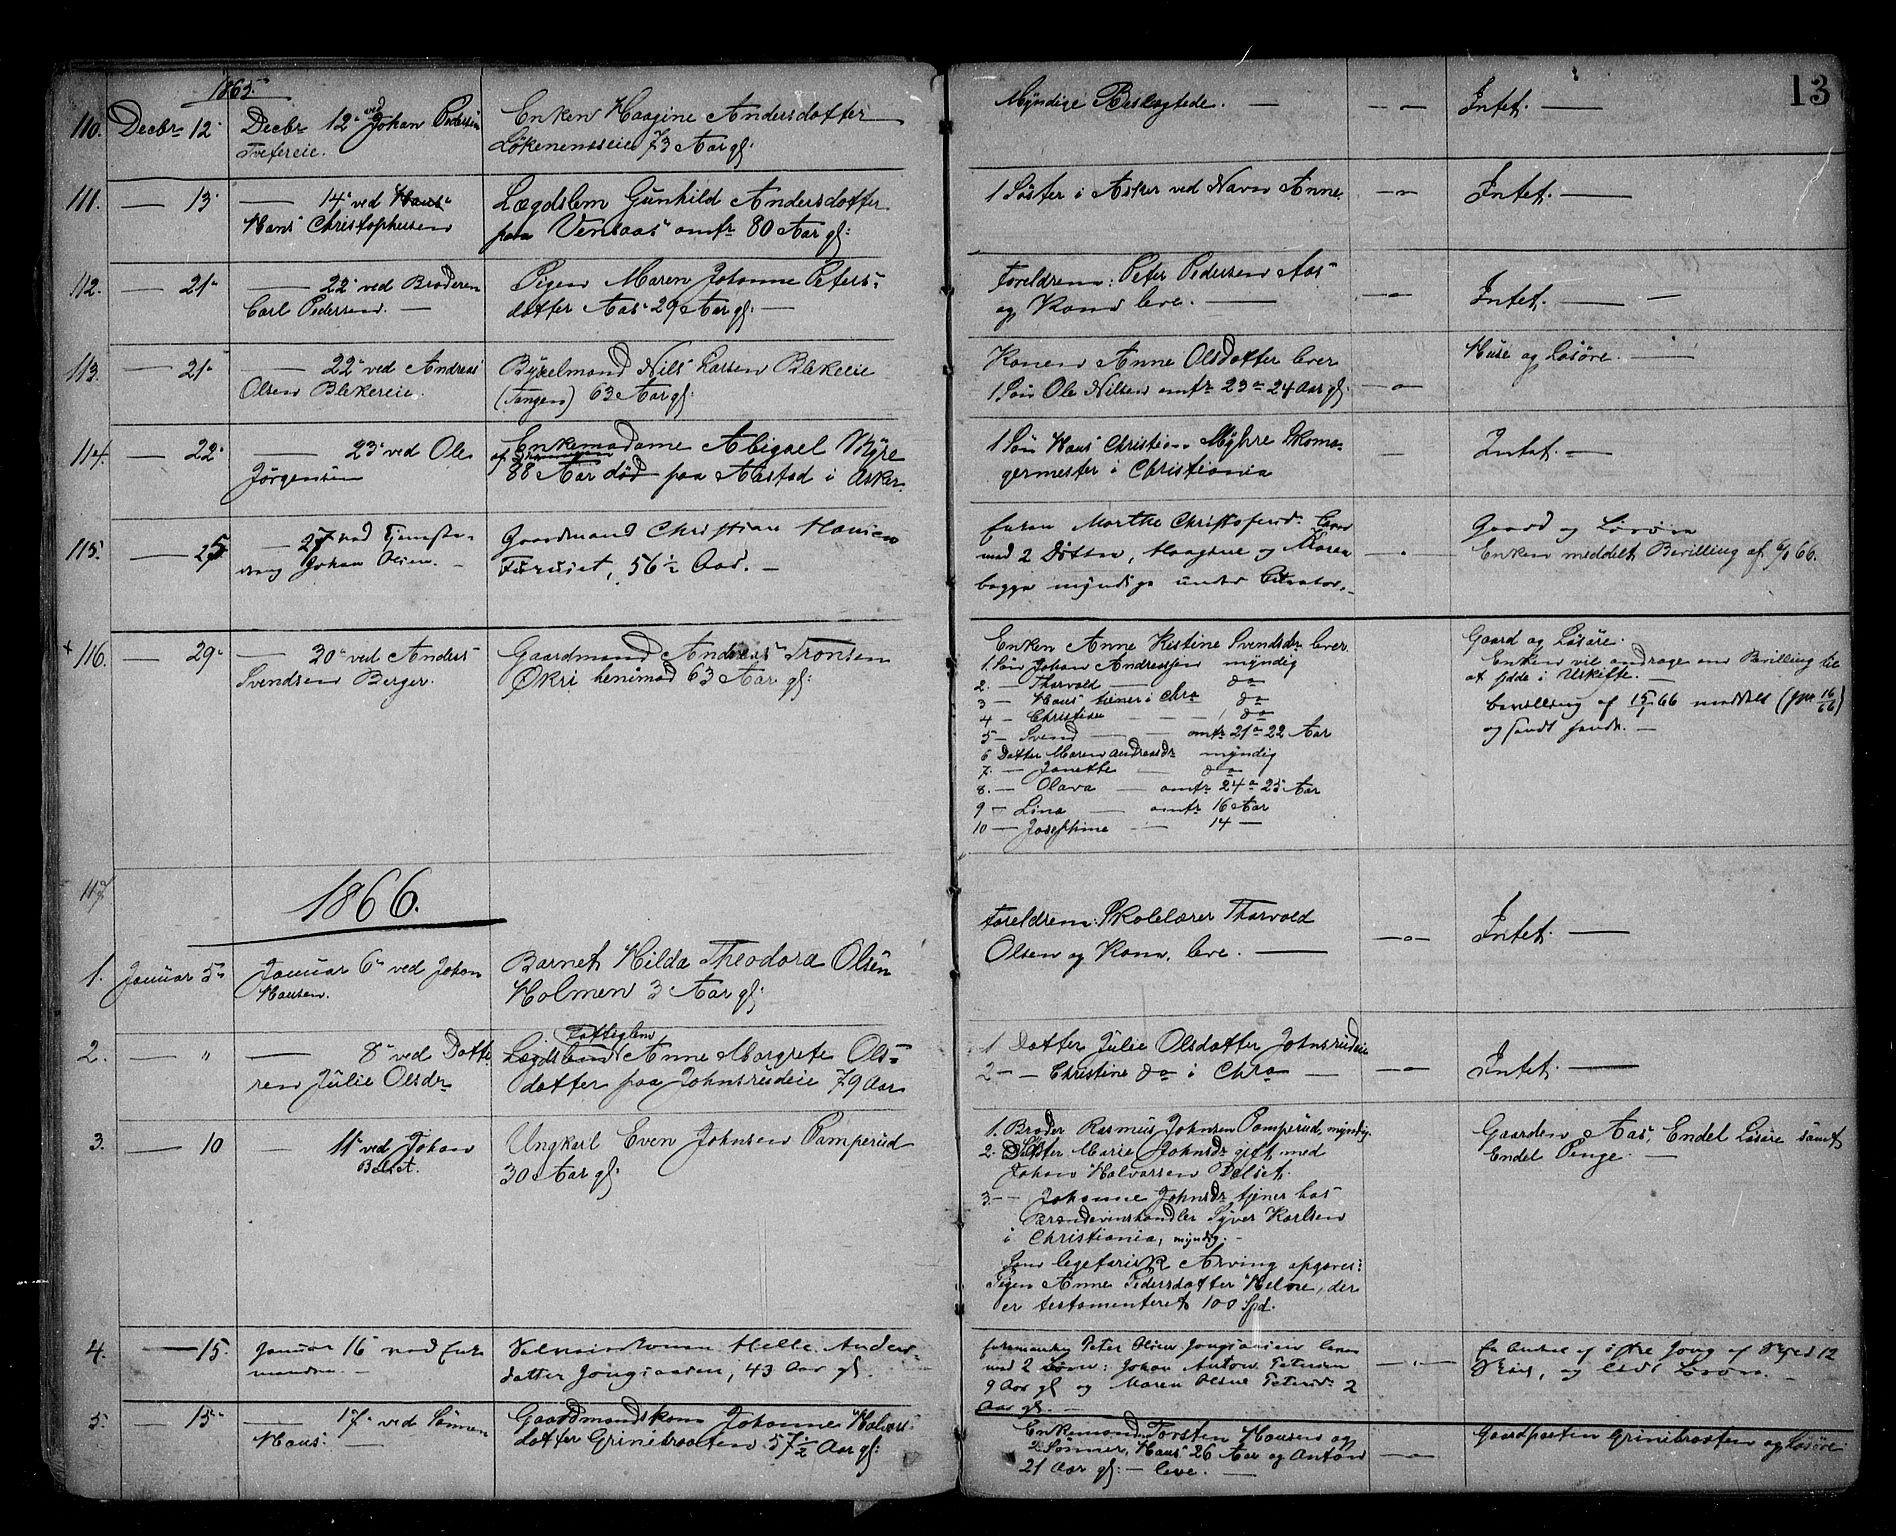 13
1865.
110. Decbr 12. Decbr 12 ved Johan Pedersen Enken Haagine Andersdatter Myndige Beslægtede. — — — Intet. —
Tveterеie. Løkenenseie 73 Aar gl.
111. — 13 — 14 ved Hans Lægdslem Gunhild Andersdatter 1 Søster i Asker ved Navn Anne. Intet. —
Hans Christophersen paa Vensaas omtr 80 Aar gl:
112. — 21 — 22 ved Broderen Pigen Maren Johanne Peters- Foreldrene: Peter Pedersen Aas
Carl Pedersen. — datter Aas 29 Aar gl. — og Kone leve. — Intet. —
113. — 21 — 22 ved Andreas Nils Larsen Blekeie Konen Anne Olsdatter lever Huse og Løsøre. —
Olsen Blekereie. (Tangen) 63 Aar gl. 1 Søn Ole Nilsen omtr 23 a 24 Aar gl.
114. — 22 — 23 ved Ole Enkemadame Abigael Myre 1 Søn Hans Christian Myhre Skoma- Intet. —
Jørgensen 88 Aar død paa Aastad i Asker. germester i Christiania
115. — 25 — 27 ved Tjeneste- Gaardmand Christian Hansen Enken Marthe Christofersd. lever Gaard og Løsøre
dreng Johan Olsen. — Furuset, 56½ Aar. — med 2 Døttre, Haagine og Maren Enken meddelt Bevilling af 6/1 66.
begge myndige under Curator. —
+ 116. — 29 — 30 ved Anders Gaardmand Andreas Tronsen Enken Anne Kistine Svendsdr lever Gaard og Løsøre.
Svendsen Berger. Økri henimod 63 Aar gl: 1. Søn Johan Andreassen myndig Enken vil andrage om Bevilling til
2. — Thorvald — do at sidde i Uskifte. —
3 — Hans tjener i Chra do Bevilling af 15/1 66 meddelt (jour 16/66)
4 — Christian — — do og sendt
5 — Svend — omtr 21 a 22 Aar
6 Datter Maren Andreasdr myndig
7. — Janette — do
8. — Olava — omtr 24 a 25 Aar
9 — Lina — omtr 16 Aar
10 — Josephine — 14 —
117
1866.
1. Januar 5 Januar 6 ved Johan Barnet Hilda Theodora Olsen Foreldrene: Skolelærer Thorvald Intet. —
Hansen. Holmen 3 Aar gl. Olsen og Kone, leve. —
2. — " — 8 ved Datte- Fattiglem
Lægdslem Anne Margrete Ols- 1 Datter Julie Olsdatter Johnsrudeie Intet. —
ren Julie Olsdr datter paa Johnsrudeie 79 Aar 2 — Christine do i Chra —
3. — 10 — 11 ved Johan Ungkarl Even Johnsen Pamperud 1. Broder Rasmus Johnsen Pamperud, myndig. Gaarden Aas, Endel Løsøre samt
Belset. 30 Aar gl. 2. Søster Marie Johnsdr gift med Endel Penge. —
Johan Halvorsen Belset.
3. — Johanne Johnsdr tjener hos
Brændevinshandler Syver Karlsen
i Christiania, myndig. —
Som Arving opgives:
Pigen Anne Pedersdatter der
er testamenteret 100 Spd.
4. — 15. Januar 16 ved Enke- Helle Anders- Enkemanden Peter Olsen lever
manden — datter 43 Aar gl. med 2 Børn: Johan Anton Petersen og Løsøre. —
9 Aar gl og Maren Petersd. 2
Aar gl. —
5 — 15 — 17 ved Sønnen Gaardmandskone Johanne Halvors- Enkemand Torsten Hansen og Gaardparten Grinibraaten og Løsøre.
Hans. — datter Grinibraaten 57½ Aar gl: 2 Sønner, Hans 26 Aar og Anton
21 Aar gl: — leve. —